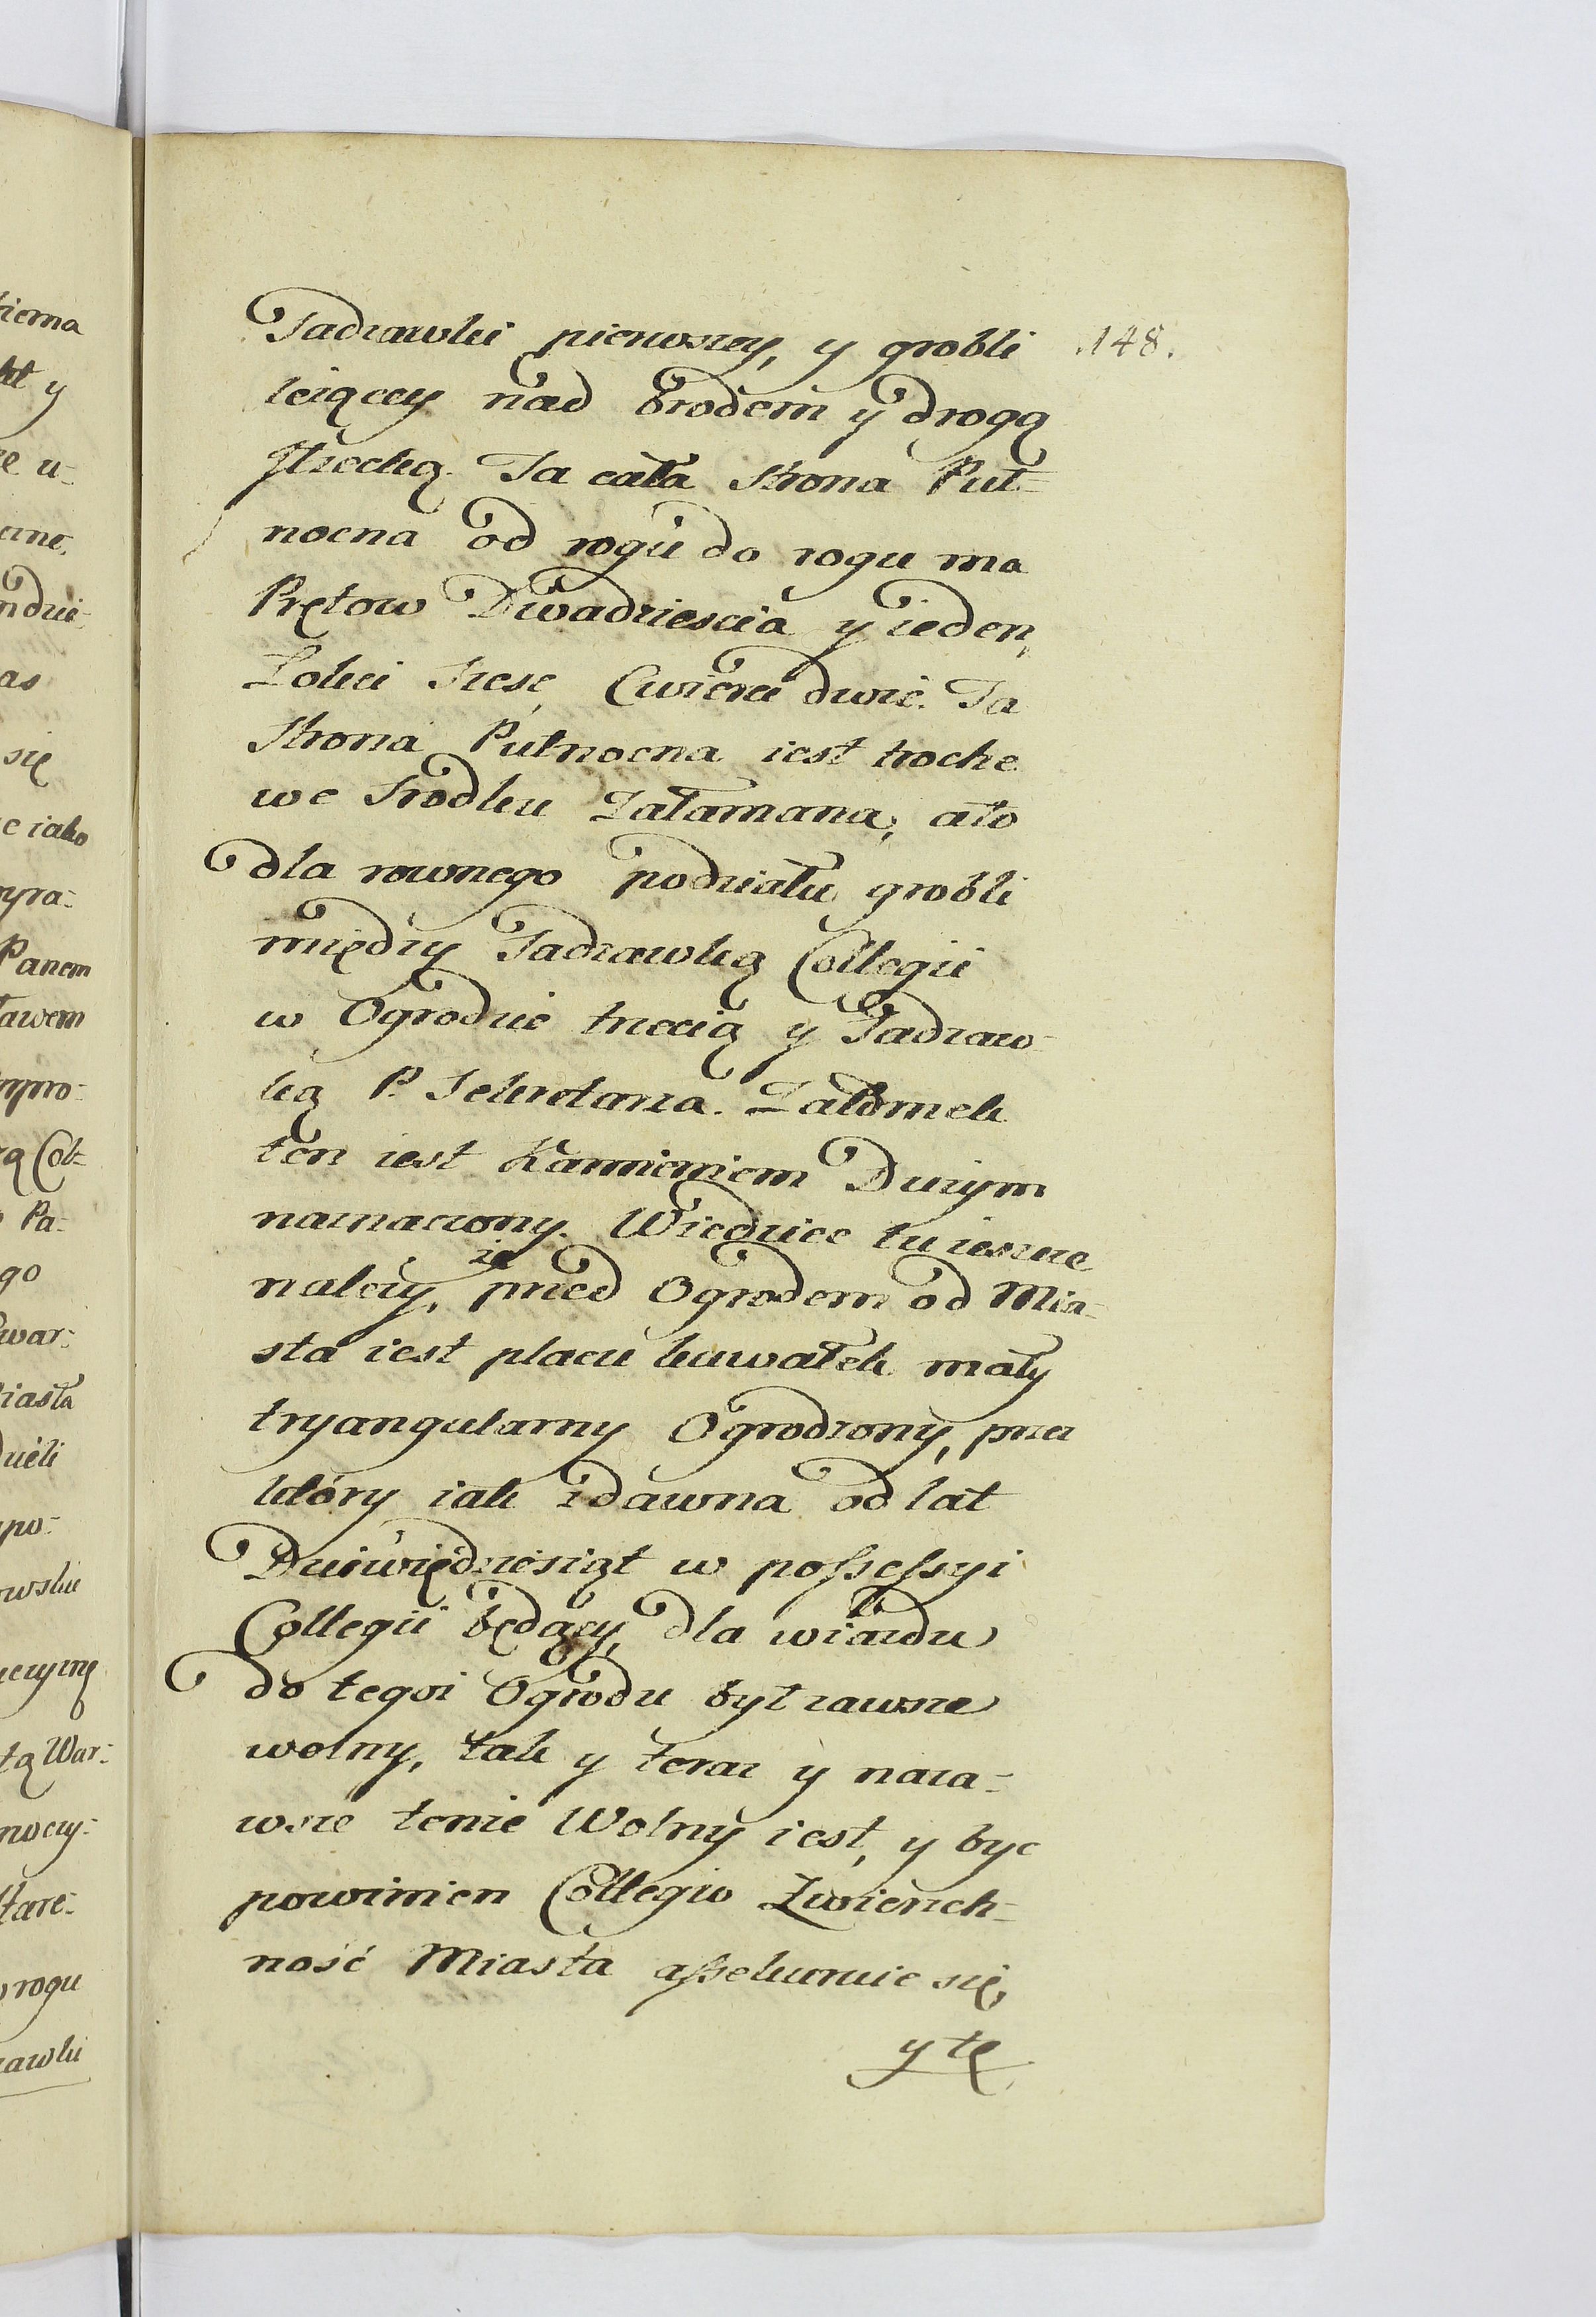 Sadzawki pierwszey, y grobli
.148.
leżącey nad Brodem y drogą
Strecką. Ta cała Strona Puł=
nocna od rogu do rogu ma
Prętow Dwadziescia y ieden,
Łokci Szesc, Cwierci dwie. Ta
Strona Pułnocna iest troche
we srodku Załamana, ato
dla rownego podziału grobli
między Sadzawką Collegii
w Ogrodzie trzecią y Sadzaw=
ką P. Sekretarza. Załomek
ten iest Kamieniem Dużym
naznaczony. Wiedziec tu ieszcze
nalezy, że przed Ogrodem od Mia=
sta iest placu kawałek mały
tryangularny Ogrodzony, przez
który iak zdawna od lat
Dziewiędziesiąt w possessyi
Collegii będący, dla wiazdu
do tegoż Ogrodu był zawsze
wolny, tak y teraz y naza=
wsze tenże Wolny iest, y byc
powinien Collegio Zwierzch=
ność Miasta assekuruie się,
y tę
ierna
y
u=
as
się
iako
Panem
awem
go
iasta
Pa=
war=
po=
tą War=
rogu
awki